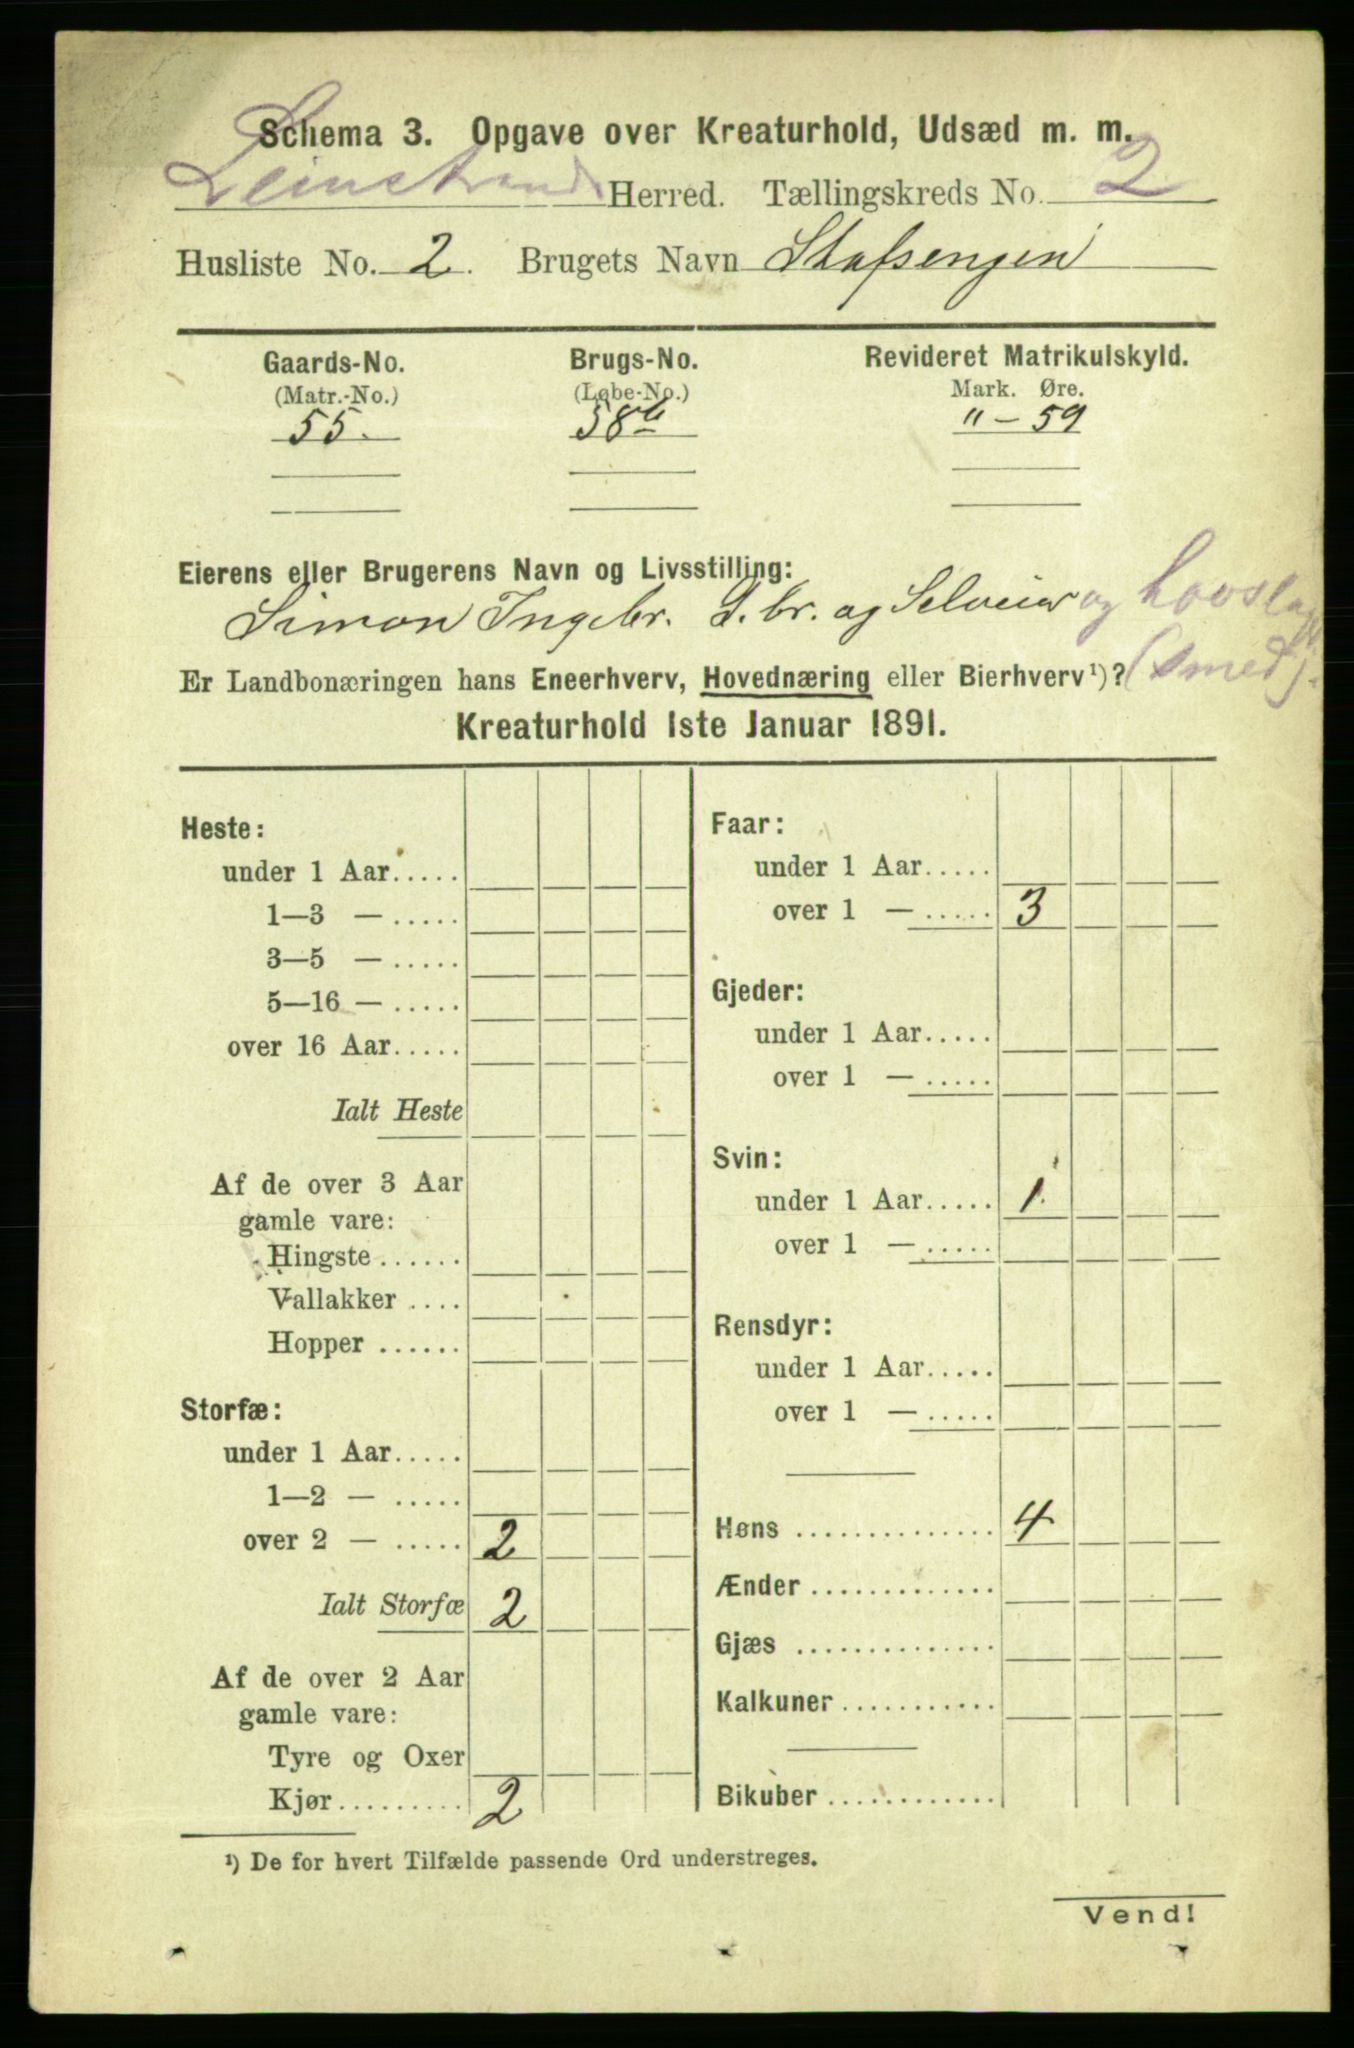 Schema 3. Opgave over Kreaturhold, Udsæd m. m.
Leinstrand Herred. Tællingskreds No. 2
Husliste No. 2. Brugets Navn Stafsengen
Gaards-No. Brugs-No. Revideret Matrikulskyld.
(Matr.-No.) (Løbe-No.) Mark. Øre.
55. 58b " – 59
Eierens eller Brugerens Navn og Livsstilling:
Simon Ingebr. G. br. og Selveier og hovslag
Er Landbonæringen hans Eneerhverv, Hovednæring eller Bierhverv¹)? (smed).
Kreaturhold 1ste Januar 1891.
Heste:
under 1 Aar.....
1—3 — .....
3—5 — .....
5—16 — .....
over 16 Aar.....
Ialt Heste
Af de over 3 Aar
gamle vare:
Hingste ......
Vallakker ....
Hopper ......
Storfæ:
under 1 Aar.....
1—2 — .....
over 2 — ..... 2
Ialt Storfæ 2
Af de over 2 Aar
gamle vare:
Tyre og Oxer
Kjør......... 2
Faar:
under 1 Aar.....
over 1 — ..... 3
Gjeder:
under 1 Aar.....
over 1 — .....
Svin:
under 1 Aar..... 1
over 1 — .....
Rensdyr:
under 1 Aar.....
over 1 — .....
Høns .............. 4
Ænder .............
Gjæs ..............
Kalkuner ...........
Bikuber ............
¹) De for hvert Tilfælde passende Ord understreges.
Vend!